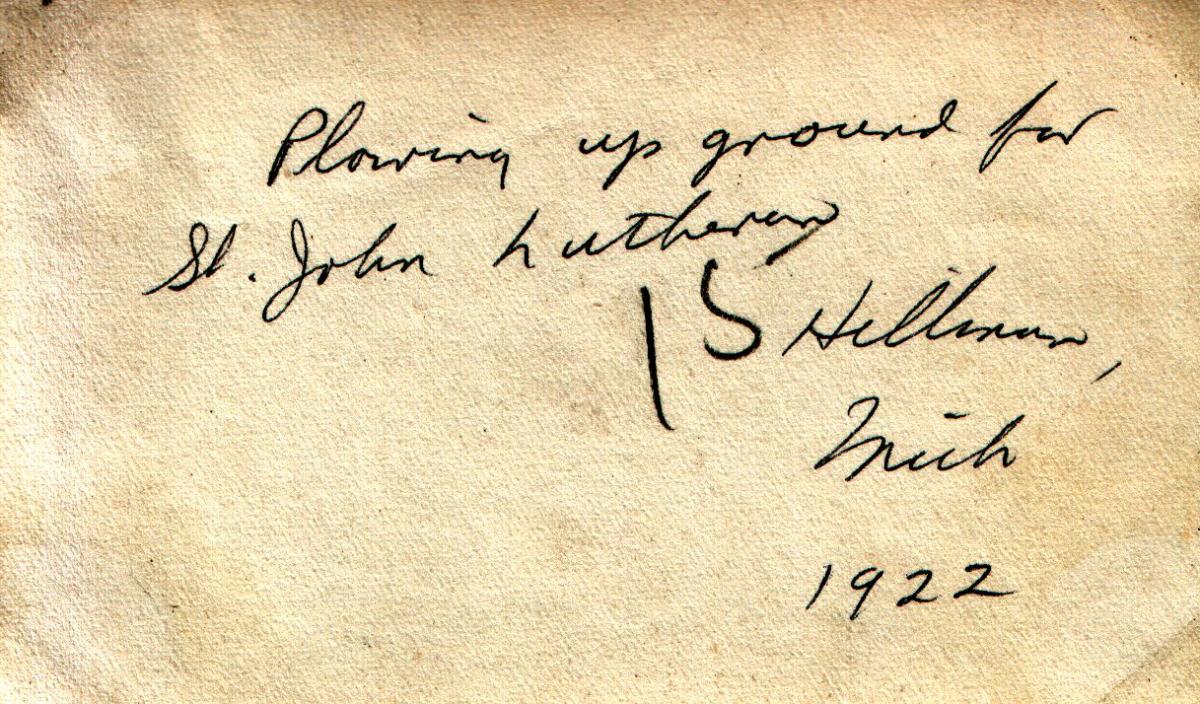 Plowing up ground for
St. John Lutheran
15 Hillman,
Mich
1922